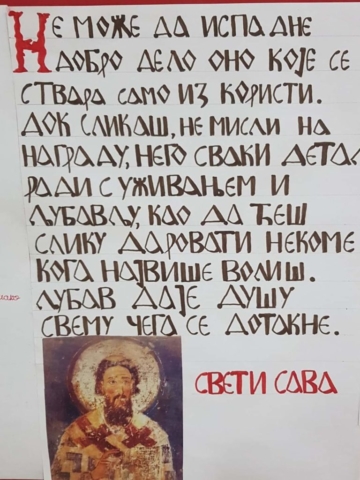 НЕ МОЖЕ ДА ИСПАДНЕ
ДОБРО ДЕЛО ОНО КОЈЕ СЕ
СТВАРА САМО ИЗ КОРИСТИ.
ДОК СЛИКАШ, НЕ МИСЛИ НА
НАГРАДУ, НЕГО СВАКИ ДЕТАЉ
РАДИ С УЖИВАЊЕМ И
ЉУБАВЉУ, КАО ДА ЋЕШ
СЛИКУ ДАРОВАТИ НЕКОМЕ
КОГА НАЈВИШЕ ВОЛИШ.
ЉУБАВ ДАЈЕ ДУШУ
СВЕМУ ЧЕГА СЕ ДОТАКНЕ.
СВЕТИ САВА